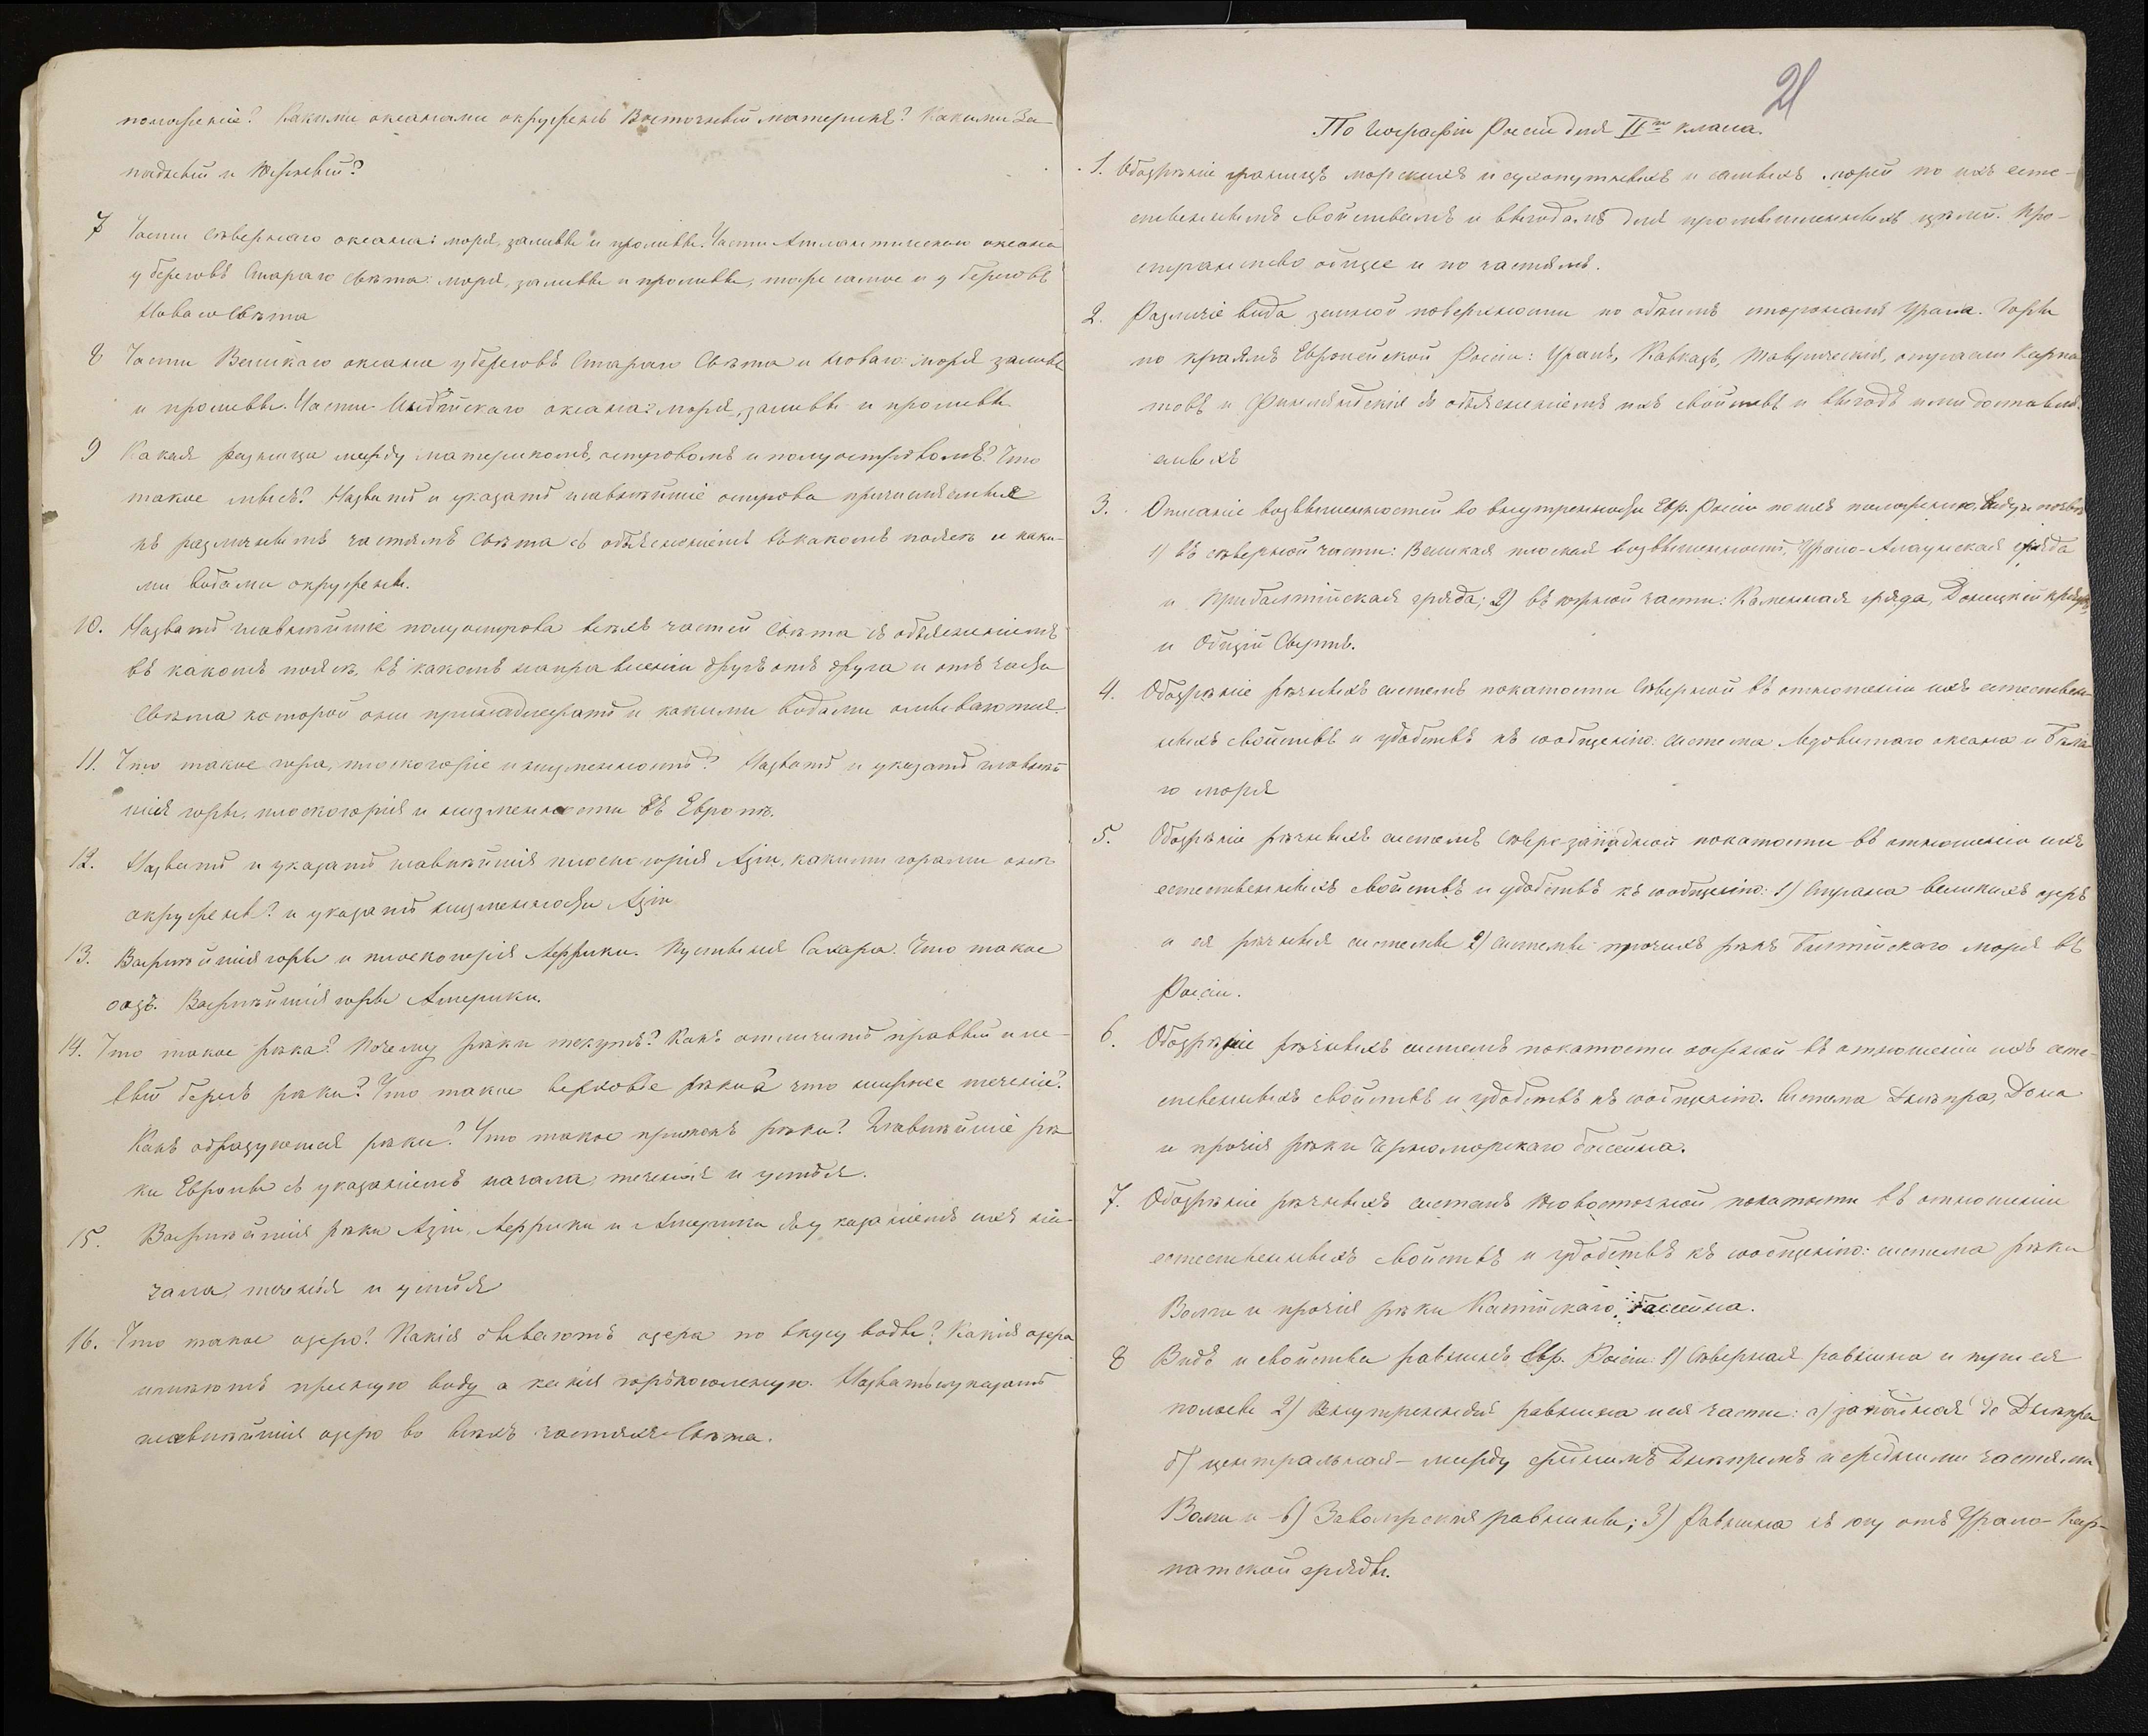 положеніе? Какими океанами окруженъ Восточный материкъ? Какими За-
падный и Южный?
7 Части Сѣвернаго океана: моря, заливы и проливы. Части Атлантическаго океана
у береговъ Стараго Свѣта: моря, заливы и проливы, тоже самое и у береговъ
Новаго Свѣта
8 Части Великаго океана у береговъ Стараго Свѣта и Новаго: моря заливы
и проливы. Части Индѣйскаго океана: моря, заливы и проливы
9 Какая разница между материкомъ, островомъ и полуостровомъ? Что
такое мысъ? Назвать и указать главнѣйшіе острова причисляемые
къ различнымъ частямъ Свѣта съ объясненіемъ въ какомъ поясѣ и каки-
ми водами окружены.
10. Назвать главнѣйшіе полуострова всѣхъ частей Свѣта съ объясненіемъ
въ какомъ поясѣ, въ какомъ направленіи другъ отъ друга и отъ части
Свѣта которой они принадлежатъ и какими водами омываются.
11. Что такое гора, плоскогоріе и низменность? Назвать и указать главнѣй
шія горы, плоскогорія и низменности въ Европѣ.
12. Назвать и указать главнѣйшія плоскогорія Азіи, какими горами онѣ
окружены? и указать низменности Азіи
13. Важнѣйшія горы и плоскогорія Африки. Пустыня Сахара. Что такое
оазъ. Важнѣйшія горы Америки.
14. Что такое рѣка? Почему рѣки текутъ? Какъ отличить правый и лѣ-
вый берегъ рѣки? Что такое верховье рѣки? а что нижнее теченіе?
Какъ образуются рѣки? Что такое притокъ рѣки? Главнѣйшіе рѣ
ки Европы съ указаніемъ начала, теченія и устья.
15. Важнѣйшія рѣки Азіи, Африки и Америки съ указаніемъ ихъ на-
чала, теченія и устья
16. Что такое озеро? Какія бываютъ озера по вкусу воды? Какія озера
имѣютъ прѣсную воду а какія горькосоленую. Назвать и указать
главнѣйшія озера во всѣхъ частяхъ Свѣта.
21
По Географіи Росіи для IIго класа.
1. Обозрѣніе границъ морскихъ и сухопутныхъ и самыхъ морей по ихъ есте-
ственнымъ свойствамъ и выгодамъ для промышленныхъ цѣлей. Про-
странство общее и по частямъ.
2. Различіе вида земной поверхности по обѣимъ сторонамъ Урала. Горы
по краямъ Европейской Росіи: Уралъ, Кавказъ, Таврическія, отрасли Карпа
товъ и Финляндскія съ объясненіемъ ихъ свойствъ и выгодъ ими доставля-
емыхъ
3. Описаніе возвышенностей во внутренности Евр. Росіи по ихъ положенію, виду и почвѣ
1) въ сѣверной части: Великая плоская возвышенность, Урало-Алаунская гряда
и Прибалтійская гряда; 2) въ южной части: Каменная гряда, Донецкій кряжъ
и Общій Сыртъ.
4. Обозрѣніе рѣчныхъ системъ покатости Сѣверной въ отношеніи ихъ естествен-
ныхъ свойствъ и удобствъ къ сообщенію: система Ледовитаго океана и Бѣла
го моря
5. Обозрѣніе рѣчныхъ системъ Сѣверо-западной покатости въ отношеніи ихъ
естественныхъ свойствъ и удобствъ къ сообщенію: 1) Страна великихъ озеръ
и ея рѣчныя системы 2) системы прочихъ рѣкъ Балтійскаго моря въ
Росіи.
6. Обозрѣніе рѣчныхъ системъ покатости южной въ отношеніи ихъ есте-
ственныхъ свойствъ и удобствъ къ сообщенію. Система Днѣпра, Дона
и прочія рѣки Черноморскаго бассейна.
7. Обозрѣніе рѣчныхъ системъ Юговосточной покатости въ отношеніи
естественныхъ свойствъ и удобствъ къ сообщенію: система рѣки
Волги и прочія рѣки Каспійскаго бассейна.
8 Видъ и свойства равнинъ Евр. Росіи: 1) Сѣверная равнина и три ея
полосы 2) Внутренняя равнина и ея части: а) западная до Днѣпра
б) центральная - между среднимъ Днѣпромъ и средними частями
Волги и в) Заволжскія равнины; 3) Равнина къ югу отъ Урало-Кар-
патской гряды.